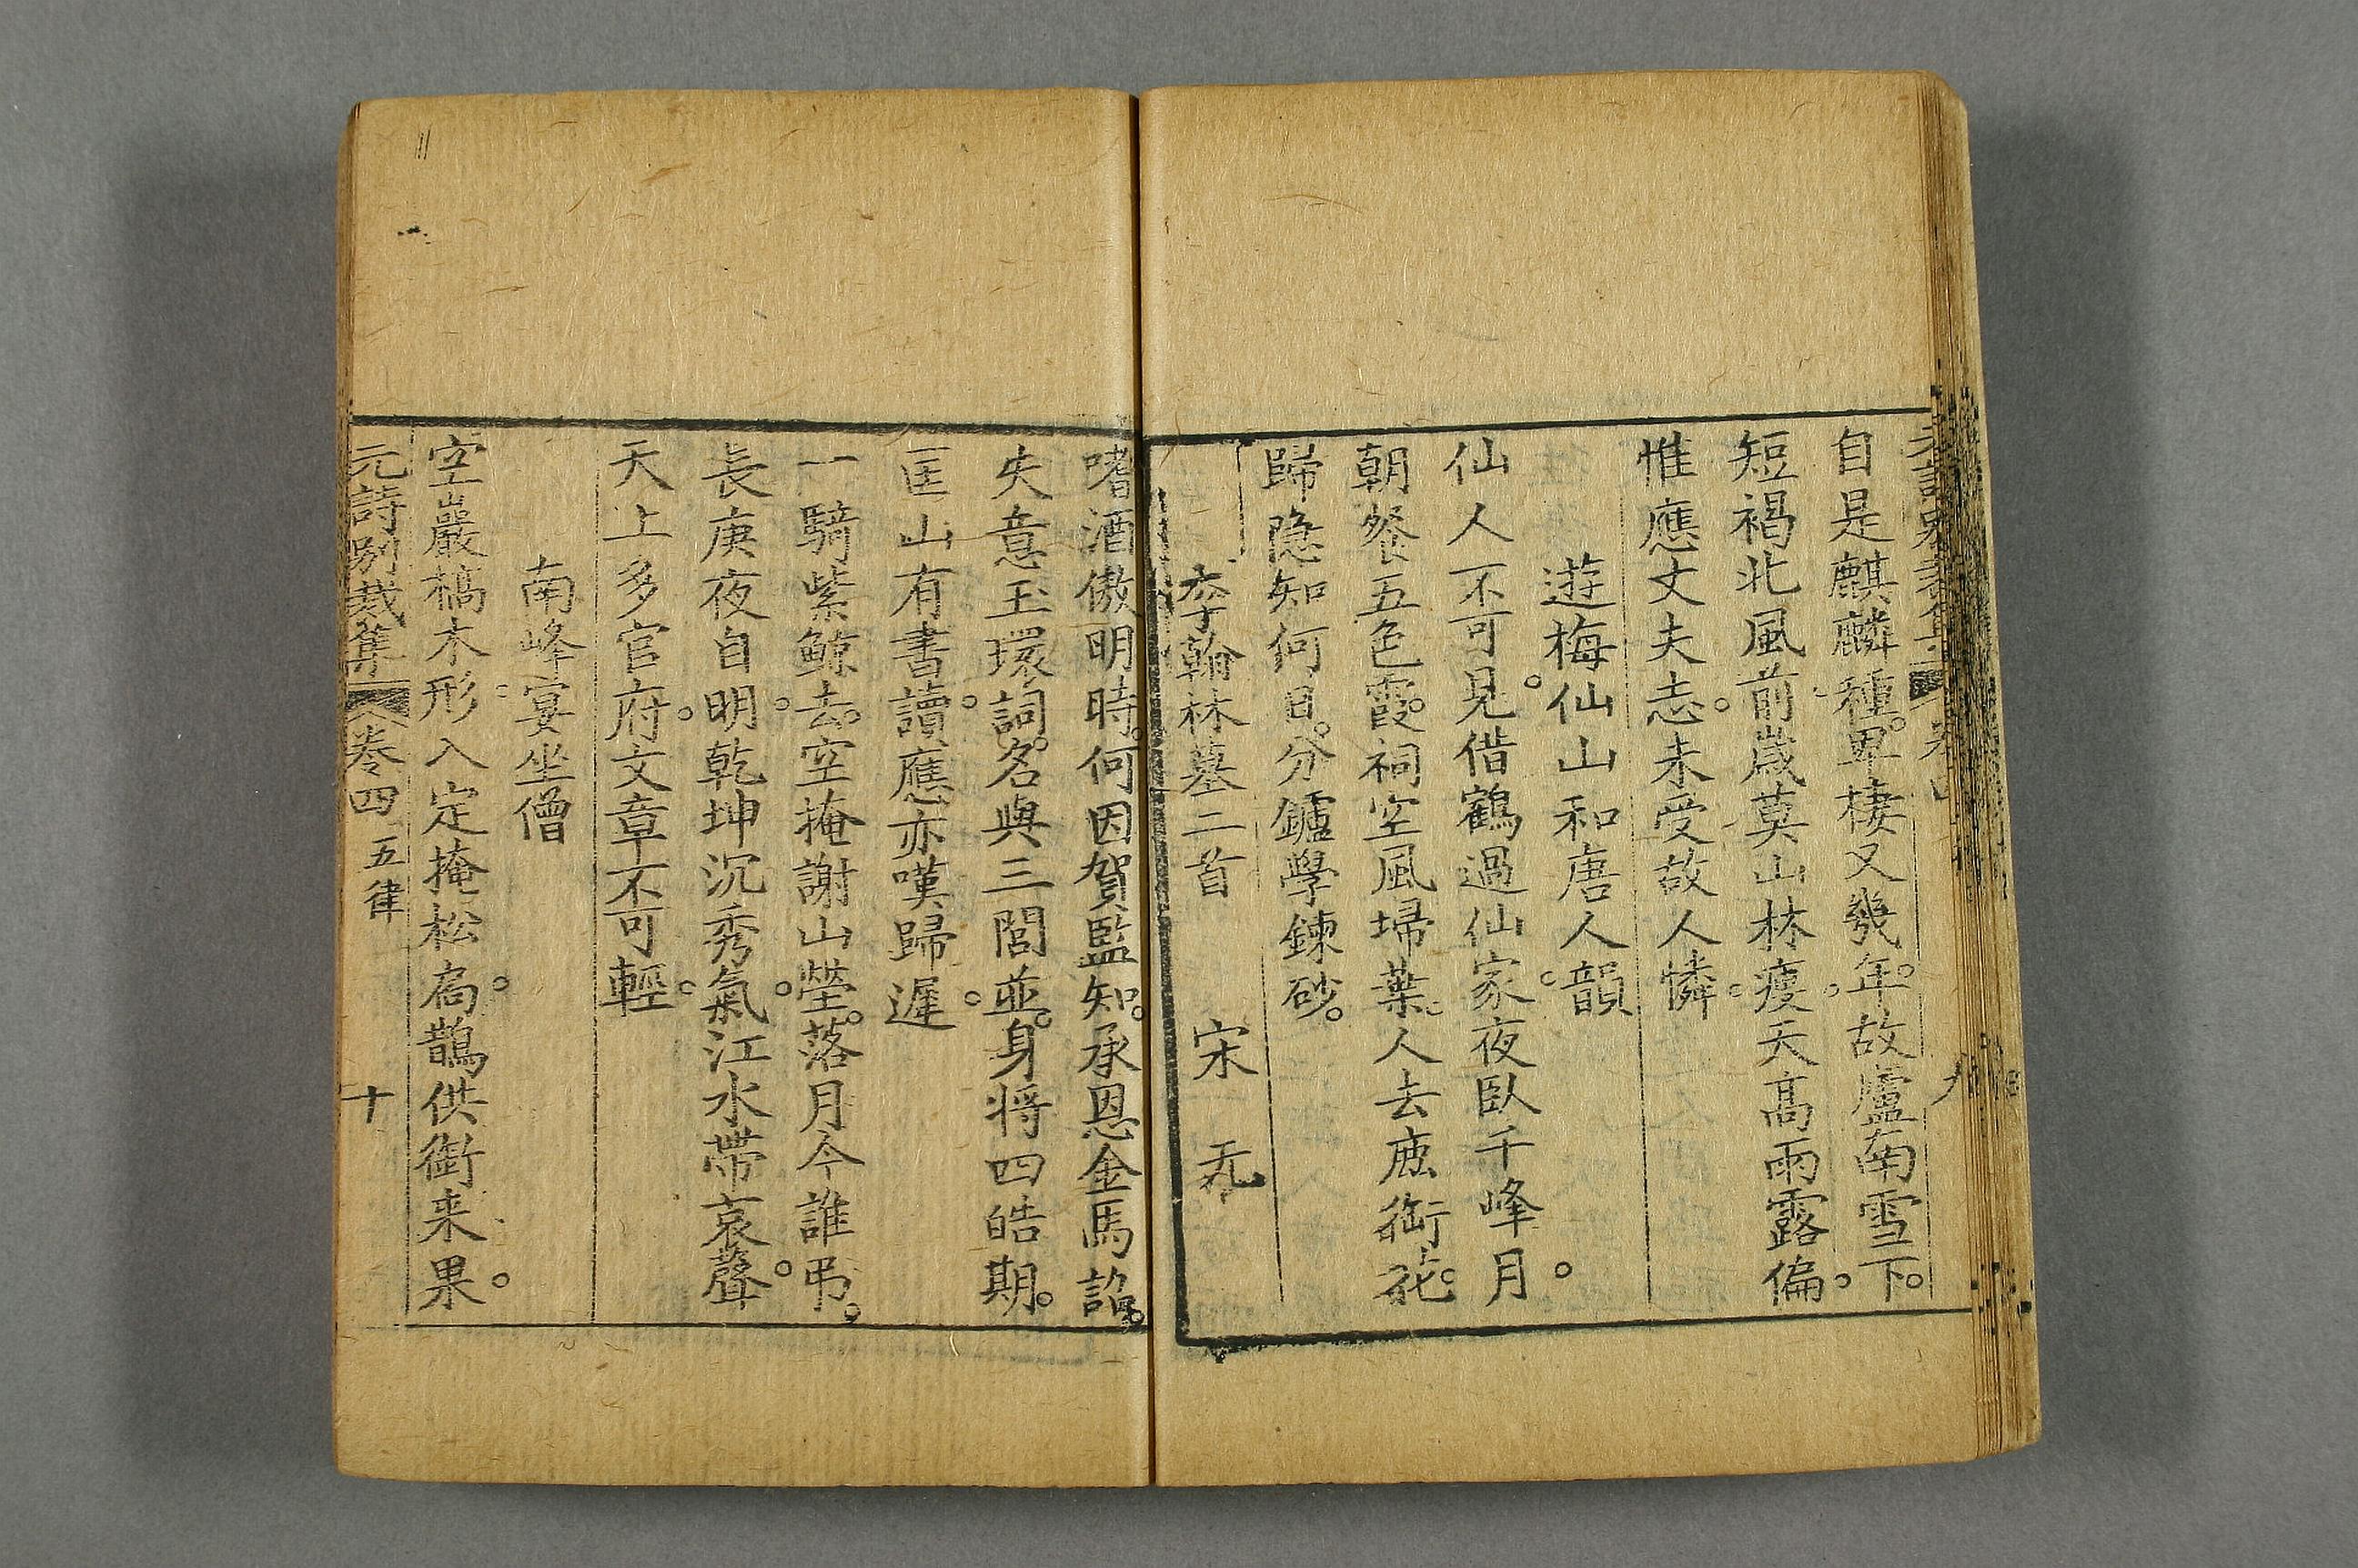 自是麒麟種。卑棲又幾年。故廬南雪下。
短褐北風前。歲莫山林瘦。天高雨露偏。
惟應丈夫志。未受故人憐。
遊梅仙山和唐人韻
仙人不可見。借鶴過仙家。夜臥千峰月。
朝餐五色霞。祠空風埽葉。人去鹿銜花。
歸隐知何日。分鑪學鍊砂。
李翰林墓二首 宋 无
嗜酒傲明時。何因賀監知。承恩金馬詔。
失意玉環詞。名與三閭並。身将四皓期。
匡山有書讀。應亦嘆歸遲。
一騎紫鲸去。空掩謝山塋。落月今誰弔。
長庚夜自明。乾坤沉秀氣。江水帶哀聲。
天上多官府。文章不可輕。
南峰宴坐僧
空巖槁木形。入定掩松扃。鵲供銜来果。
元詩别裁集 卷四 五律 十